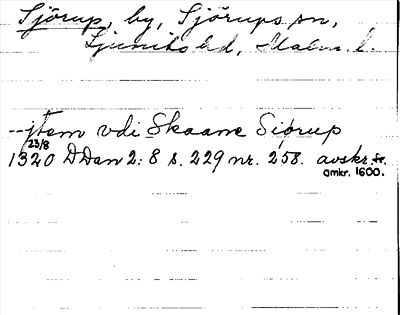 Sjörup, by, Sjörups sn,
Ljunits hd, Malm. l.
--jtem vdi Skaane Siørup
23/8
1320 DDan 2: 8 s. 229 nr. 258. avskr. fr.
omkr. 1600.